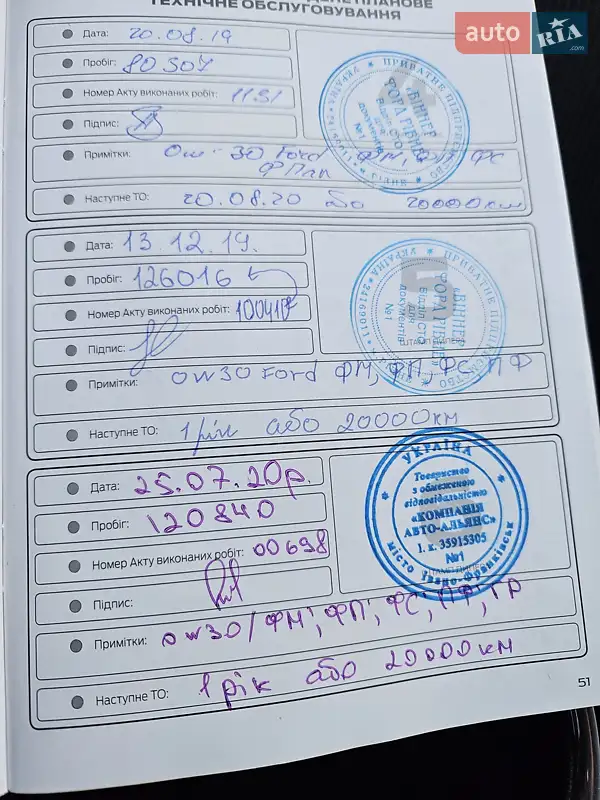 ПЛАНОВЕ
ТЕХНІЧНЕ ОБСЛУГОВУВАННЯ
auto RIA.com
Дата: 20.08.19
Пробіг: 80304
Номер Акту виконаних робіт: 1131
Підпис:
Примітки: Ow-30 Ford ФМ, ФП, ФС
ФПал
Наступне ТО: 20.08.20 або 20000км
Дата: 13.12.19.
Пробіг: 126016
Номер Акту виконаних робіт: 100417
Підпис:
ШТАМП ДИЛЕРА
Примітки: OW30 Ford ФМ, ФП, ФС, ПФ
Наступне ТО: 1 рік або 20000км
Дата: 25.07.20р.
Пробіг: 120840
Номер Акту виконаних робіт: 00698
Підпис:
ШТАМП ДИЛЕРА
Примітки: OW30/ФМ, ФП, ФС, ПФ, ГР
Наступне ТО: 1 рік або 20000км
ПРИВАТНЕ ПІДПРИЄМСТВО
УКРАЇНА
«ВІННЕР
ФОРД РІВНЕ»
Відділ СТО
для
документів
№1
УКРАЇНА
Товариство
з обмеженою
відповідальністю
«КОМПАНІЯ
АВТО-АЛЬЯНС»
І. к. 35915305
№1
місто Івано-Франківськ
51